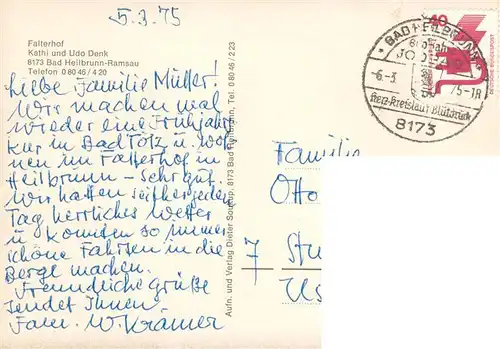 5.3.75
Falterhof
Kathi und Udo Denk
8173 Bad Heilbrunn-Ramsau
Telefon 0 80 46 / 4 20
Liebe Familie Müller!
Wir machen mal
wieder eine Frühjahrs
kur in Bad Tölz u. woh
nen im Falterhof in
Heilbrunn – sehr gut.
Wir hatten seither jeden
Tag herrliches Wetter
u. konnten so immer
schöne Fahrten in die
Berge machen.
Freundliche Grüße
sendet Ihnen
Fam. W. Krämer
Aufn. und Verlag Dieter Sontop, 8173 Bad Heilbrunn, Tel. 0 80 46 / 2 23
BAD HEILBRUNN
-6.-3. 75-18
Herz-Kreislauf Blutdruck
8173
40
DEUTSCHE BUNDESPOST
Familie
Otto
7 Stu
Us